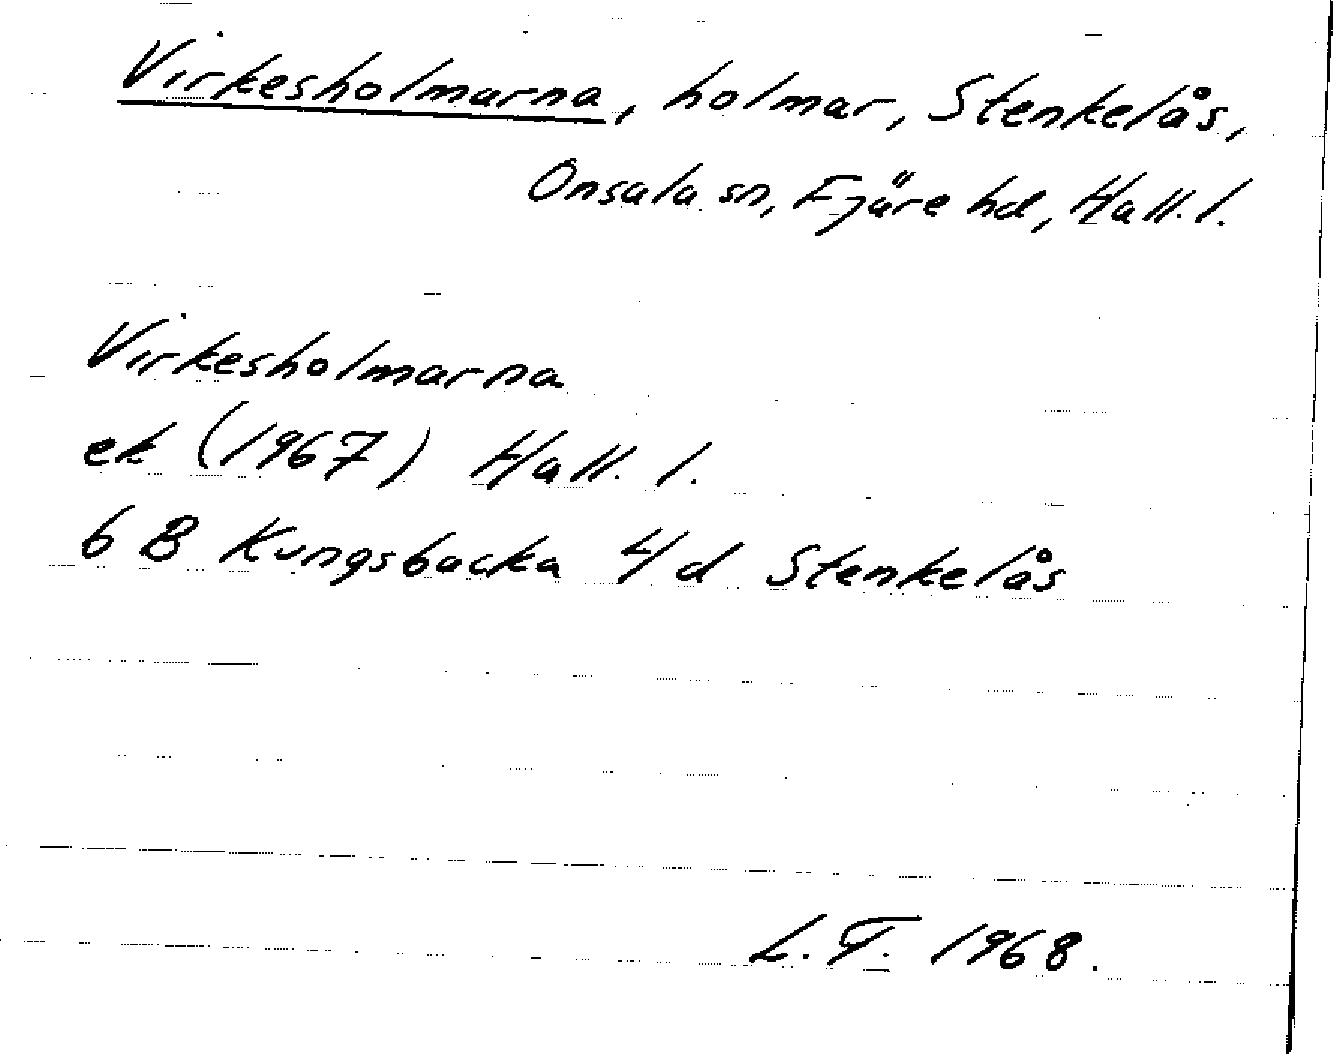 Virkesholmarna, holmar, Stenkelås,
Onsala sn, Fjäre hd, Hall. l.
Virkesholmarna
ek (1967) Hall. l.
6 B Kungsbacka 4/d Stenkelås
L.T. 1968.